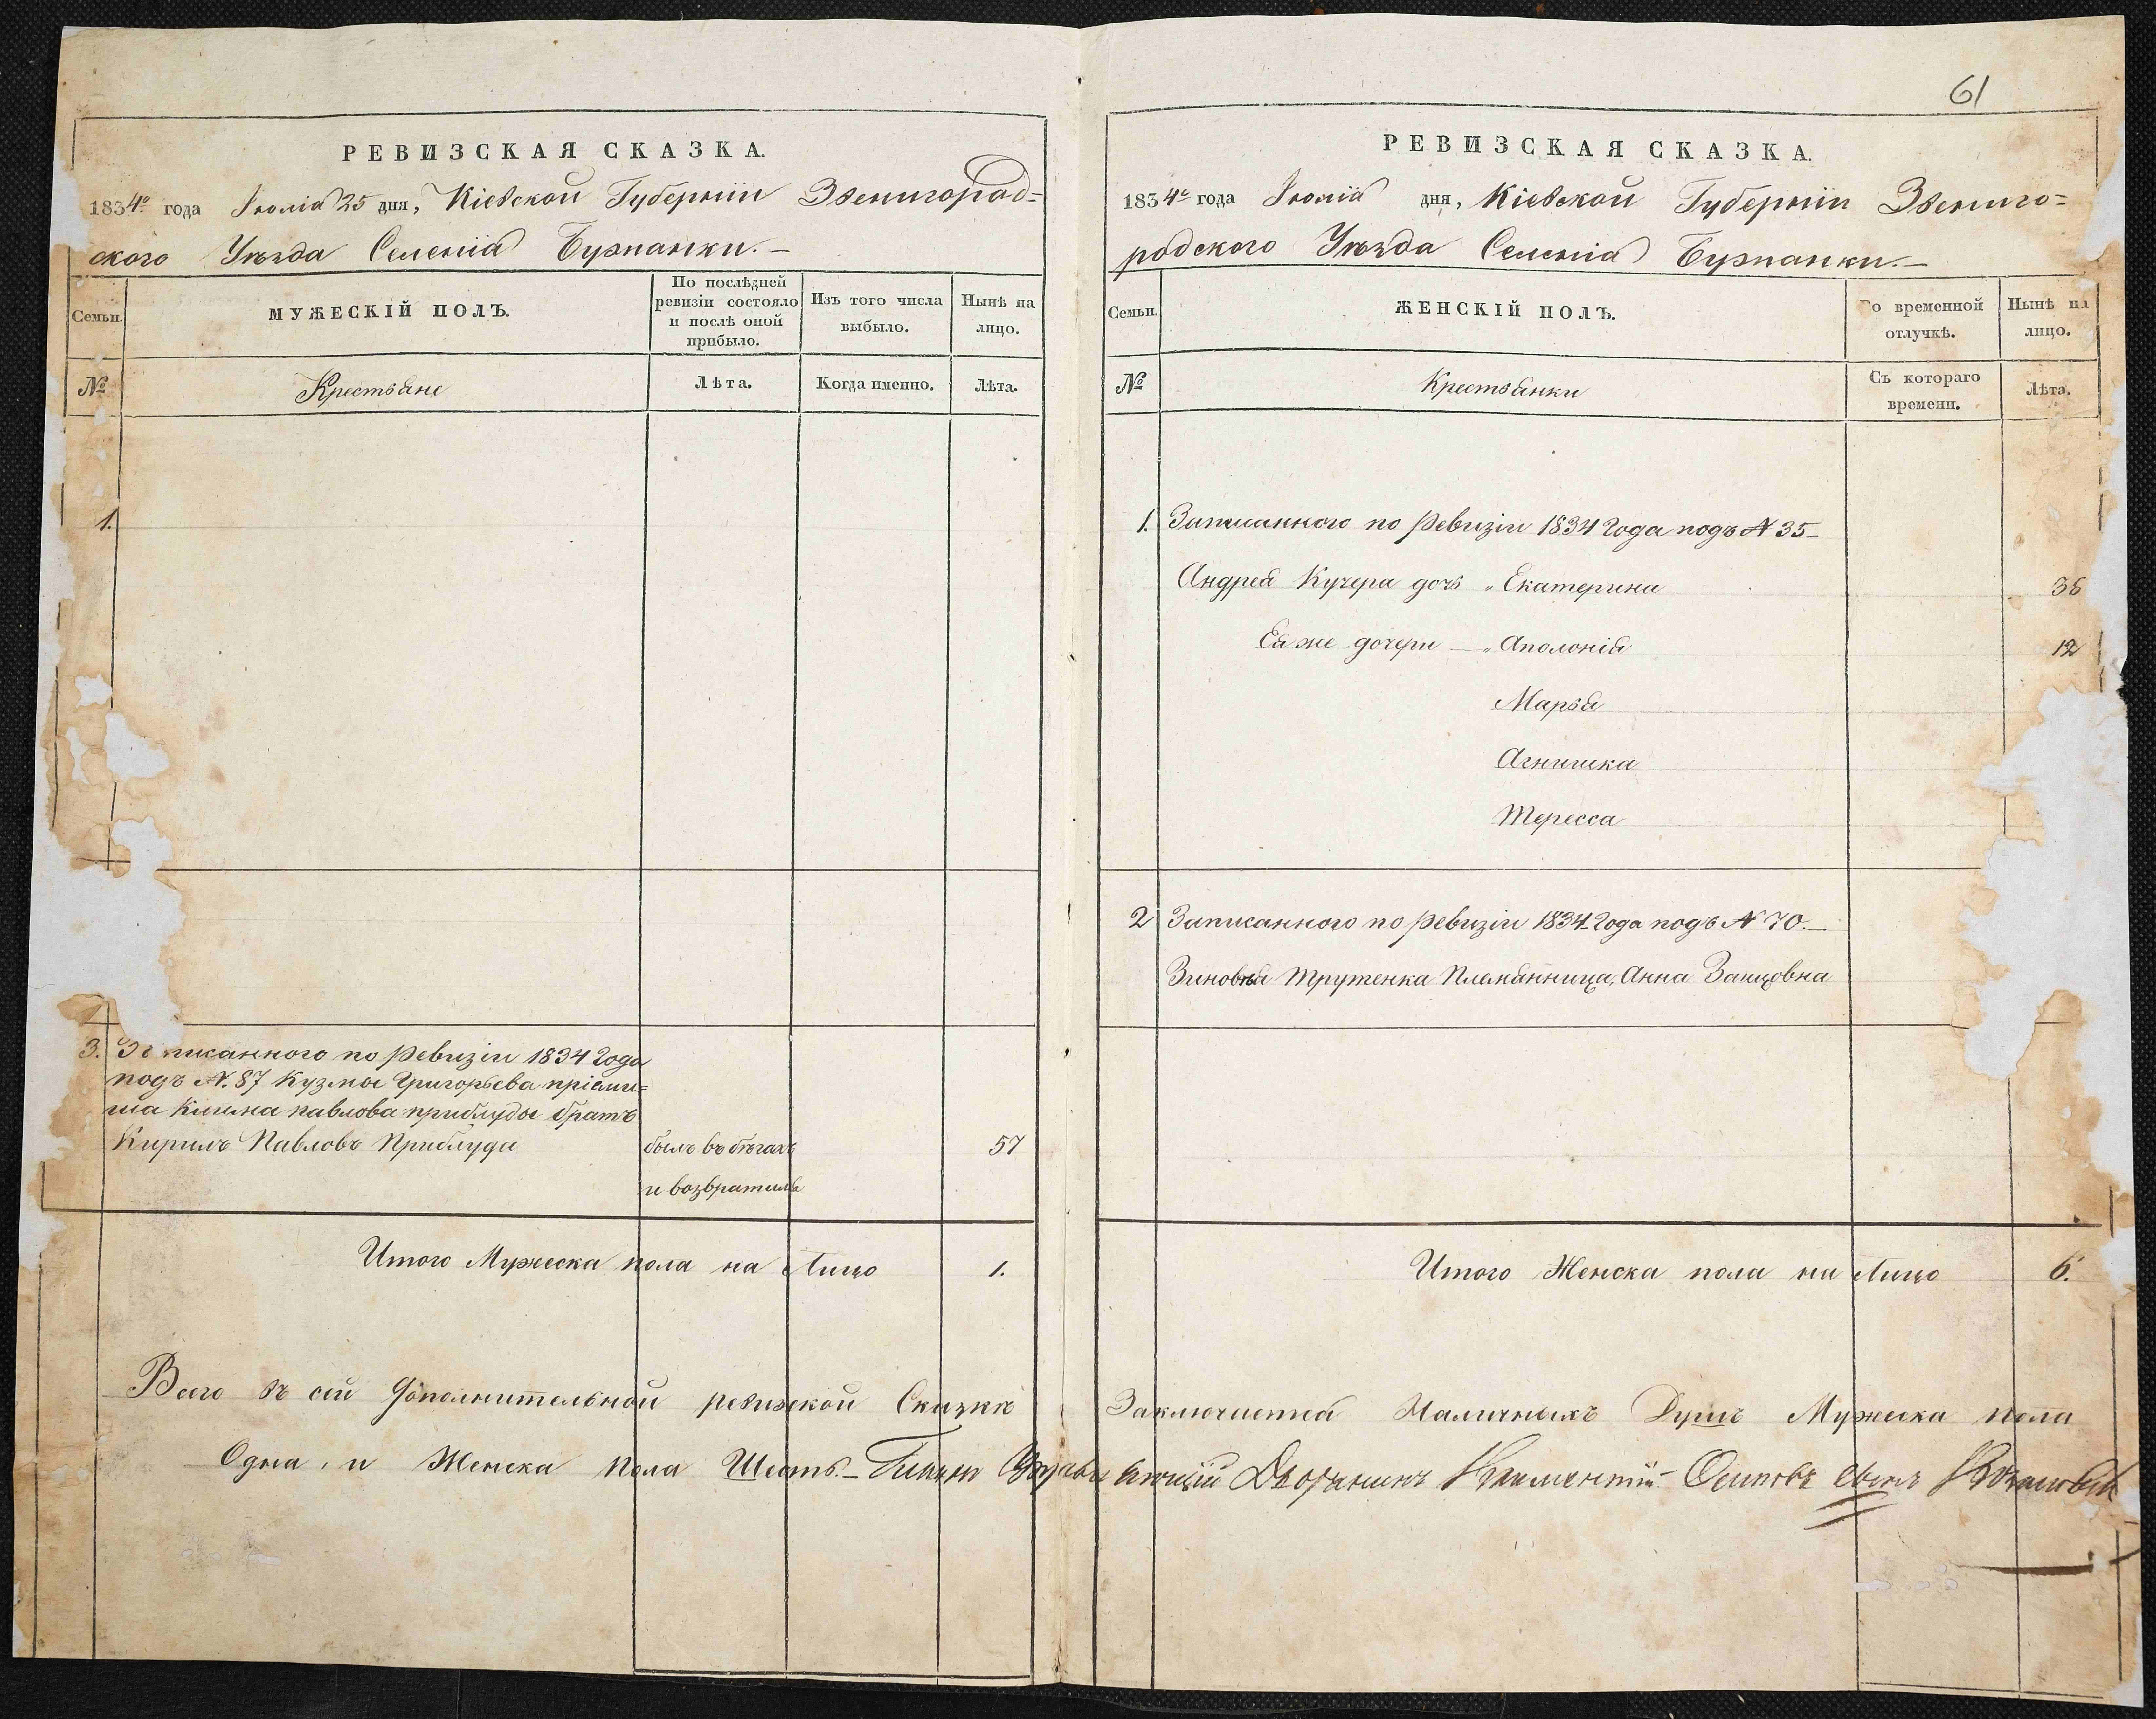 61
РЕВИЗСКАЯ СКАЗКА.
1834го года Іюлія 25 дня, Кіевской Губерніи Звенигород=
скаго Уѣзда Селенія Бужанки.—
Семьи.
МУЖЕСКІЙ ПОЛЪ.
По послѣдней ревизіи состояло и послѣ оной прибыло.
Изъ того числа выбыло.
Нынѣ на лицо.
№
Крестьяне
Лѣта.
Когда именно.
Лѣта.
1.
3. Записанного по ревизіи 1834 года
подъ №. 87 Кузмы Григорьева пріемы=
ша Клима Павлова приблуды братъ
Кирилъ Павловъ Приблуда былъ въ бѣгахъ 57
и возвратился
Итого Мужеска пола на Лицо 1.
РЕВИЗСКАЯ СКАЗКА.
1834го года Іюлія дня, Кіевской Губерніи Звениго=
родского Уѣзда Селенія Бужанки.—
Семьи.
ЖЕНСКІЙ ПОЛЪ.
Во временной отлучкѣ.
Нынѣ на лицо.
№
Крестьянки
Съ котораго времени.
Лѣта.
1. Записанного по ревизіи 1834 года подъ № 35-
Андрея Кучера дочь „Екатерина 36
Ея же дочери — „Аполонія 12
Марья
Агнишка
Тересса
2 Записанного по ревизіи 1834 года подъ № 70.—
Зиновія Трутенка Племянница, Анна
Итого Женска пола на Лицо 6.
Всего въ сей Дополнительной ревизской Сказкѣ Заключается Наличныхъ Душъ Мужеска пола
Одна, и Женска пола Шесть.— Дворянинъ Осиповъ сынъ